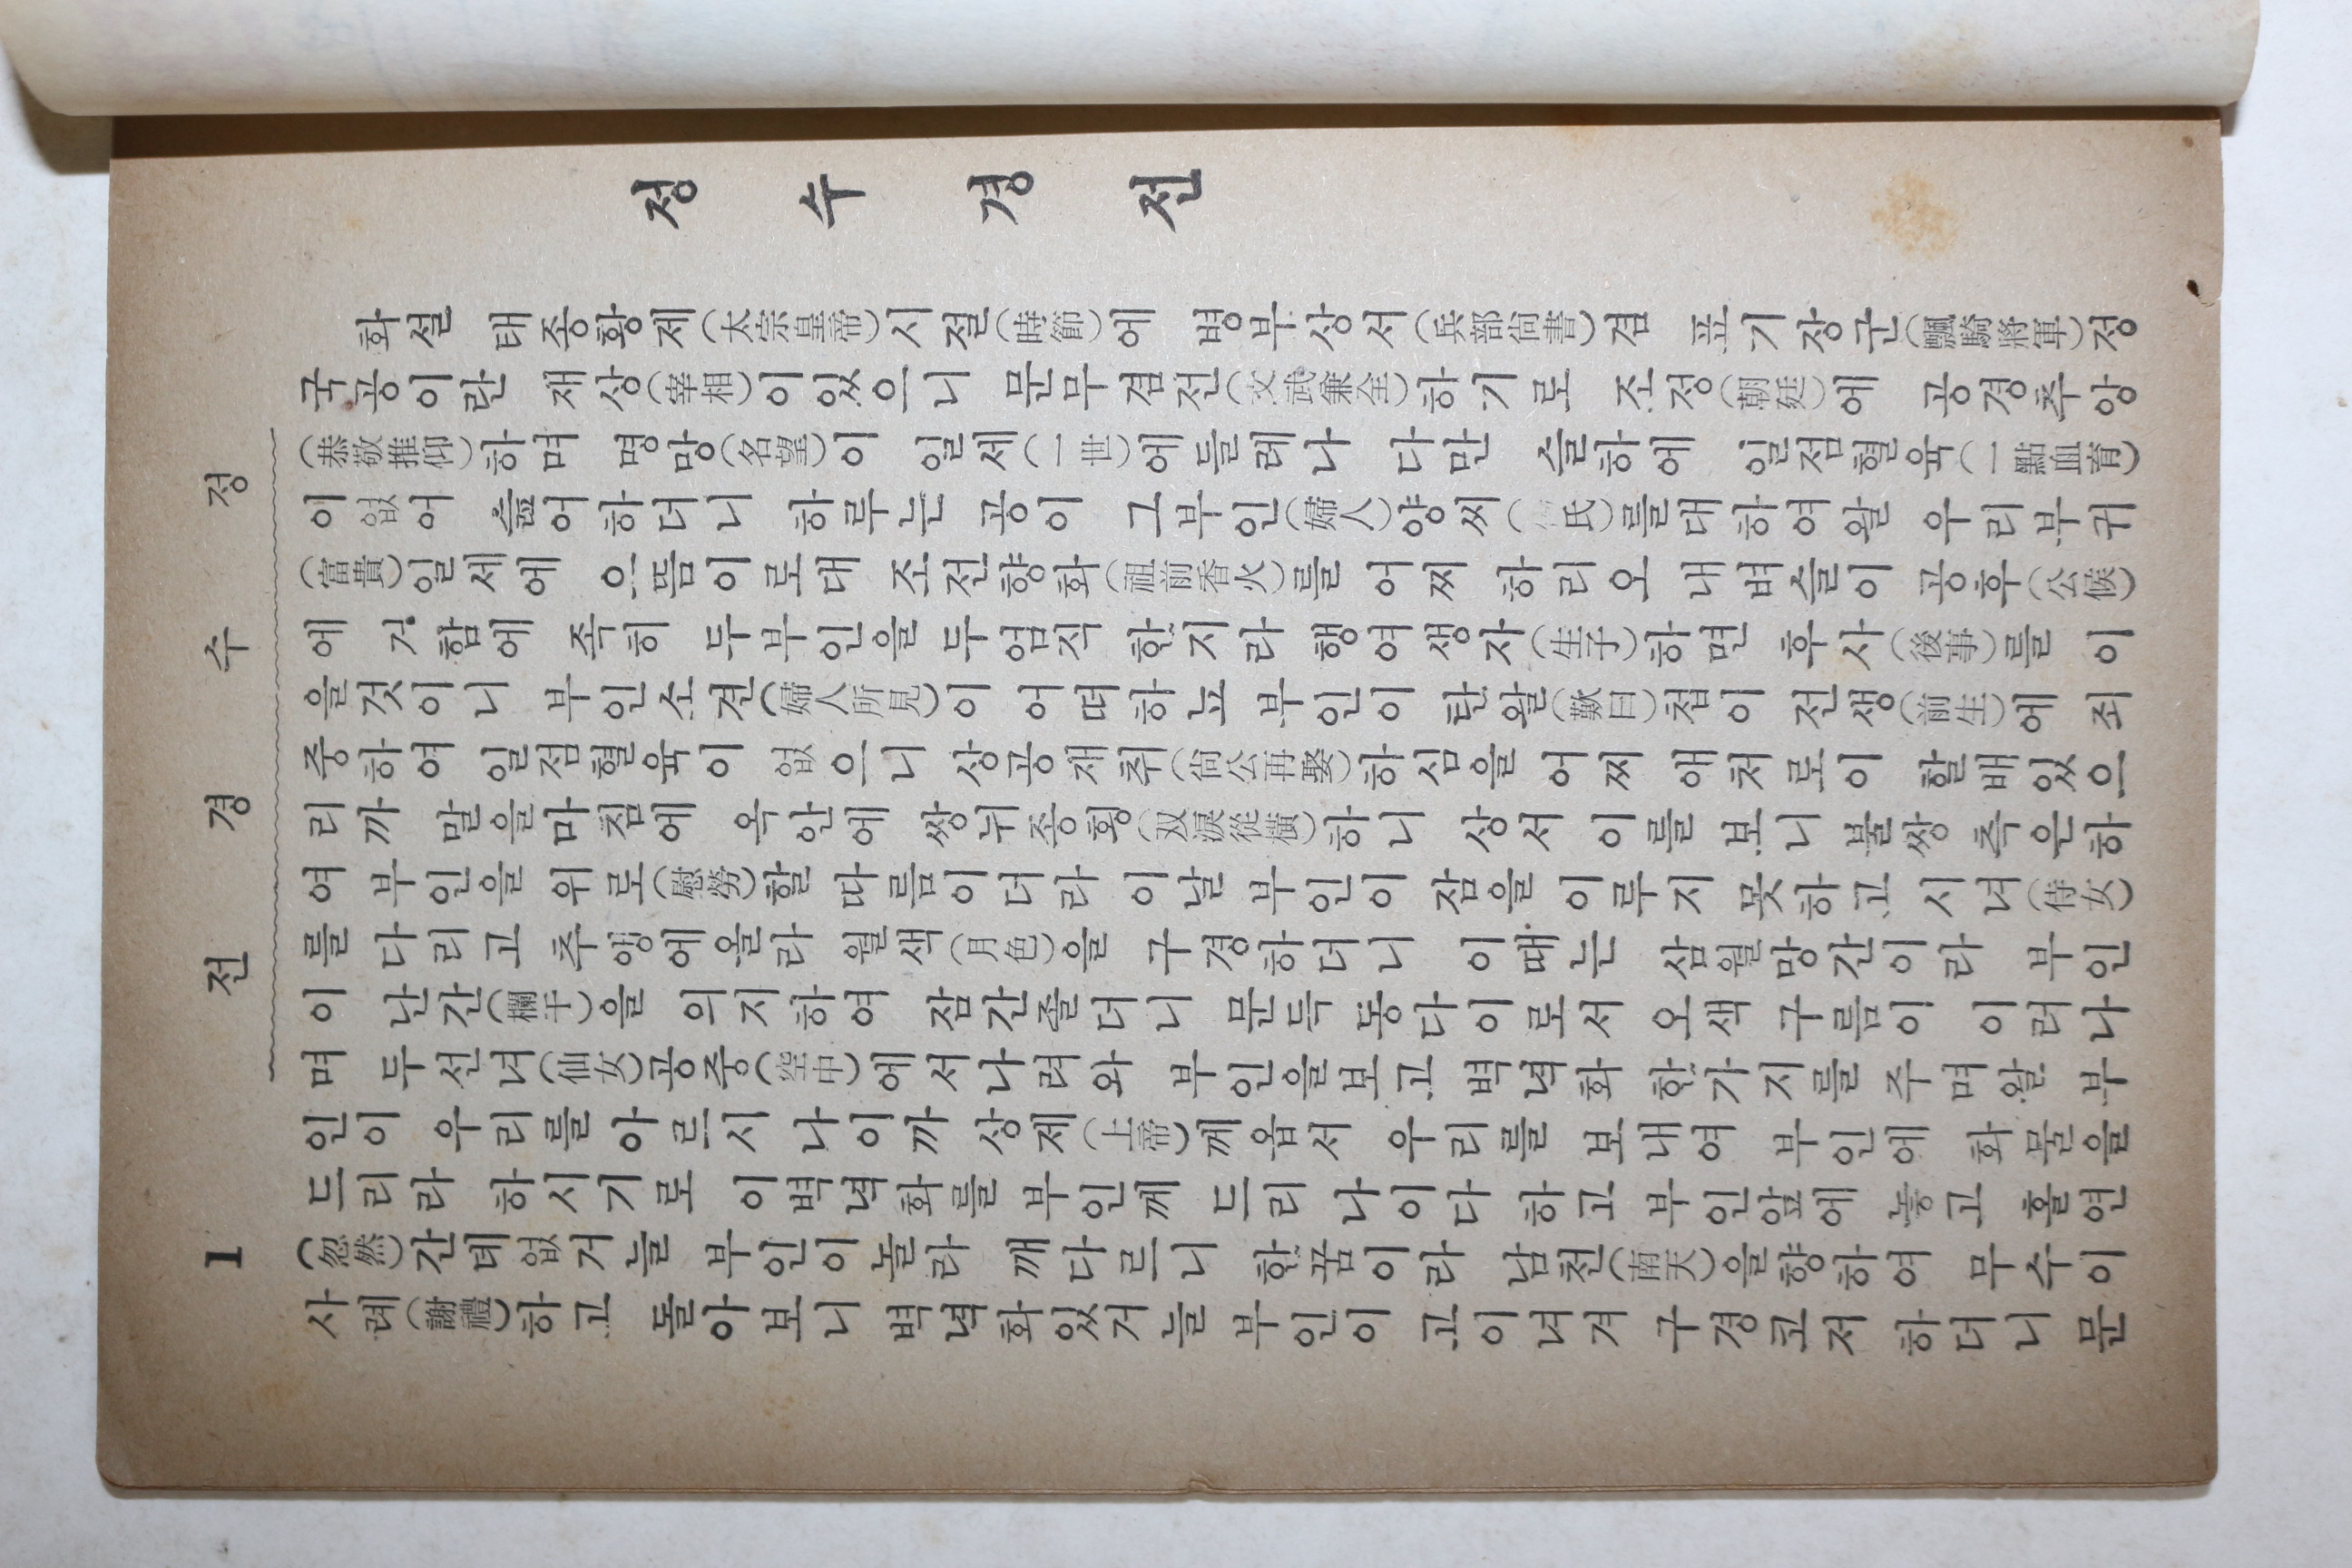 정수경전
1
정수경전
화설 태종황제(太宗皇帝)시절(時節)에 병부상서(兵部尙書)겸 표기장군(飄騎將軍)정
국공이란 재상(宰相)이있으니 문무겸전(文武兼全)하기로 조정(朝廷)에 공경추앙
(恭敬推仰)하며 명망(名望)이 일세(一世)에들레나 다만 슬하에 일점혈육(一點血育)
이 없어 슲어하더니 하루는 공이 그부인(婦人)양씨(氏)를대하여왈 우리부귀
(富貴)일세에 으뜸이로대 조전향화(祖前香火)를 어찌 하리오 내벼슬이 공후(公候)
에 거함에 족히 두부인을 두엄직 한지라 행여생자(生子)하면 후사(後事)를 이
을것이니 부인소견(婦人所見)이 어떠하뇨 부인이 탄왈(歎曰)첩이 전생(前生)에 죄
중하여 일점혈육이 없으니 상공재취(尙公再娶)하심을 어찌 애처로이 할배있으
리까 말을마침에 옥안에 쌍뉘종횡(双淚從橫)하니 상서 이를 보니 불쌍 측은하
여 부인을 위로(慰勞)할 따름이더라 이날 부인이 잠을 이루지 못하고 시녀(侍女)
를 다리고 추앵에올라 월색(月色)을 구경하더니 이때는 삼월망간이라 부인
이 난간(欄干)을 의지하여 잠간졸더니 문득 동다이로서 오색 구름이 이러나
며 두선녀(仙女)공중(空中)에서나려와 부인을보고 벽녁화 한가지를 주며왈 부
인이 우리를 아르시 나이까 상제(上帝)께옵서 우리를 보내여 부인에 화물을
드리라 하시기로 이벽녁화를 부인께 드리 나이다 하고 부인앞에 놓고 홀연
(忽然)간데없거늘 부인이놀라 깨다르니 한꿈이라 남천(南天)을향하여 무수이
사례(謝禮)하고 돌아보니 벽녁화있거늘 부인이 고이녀겨 구경코저 하더니 문